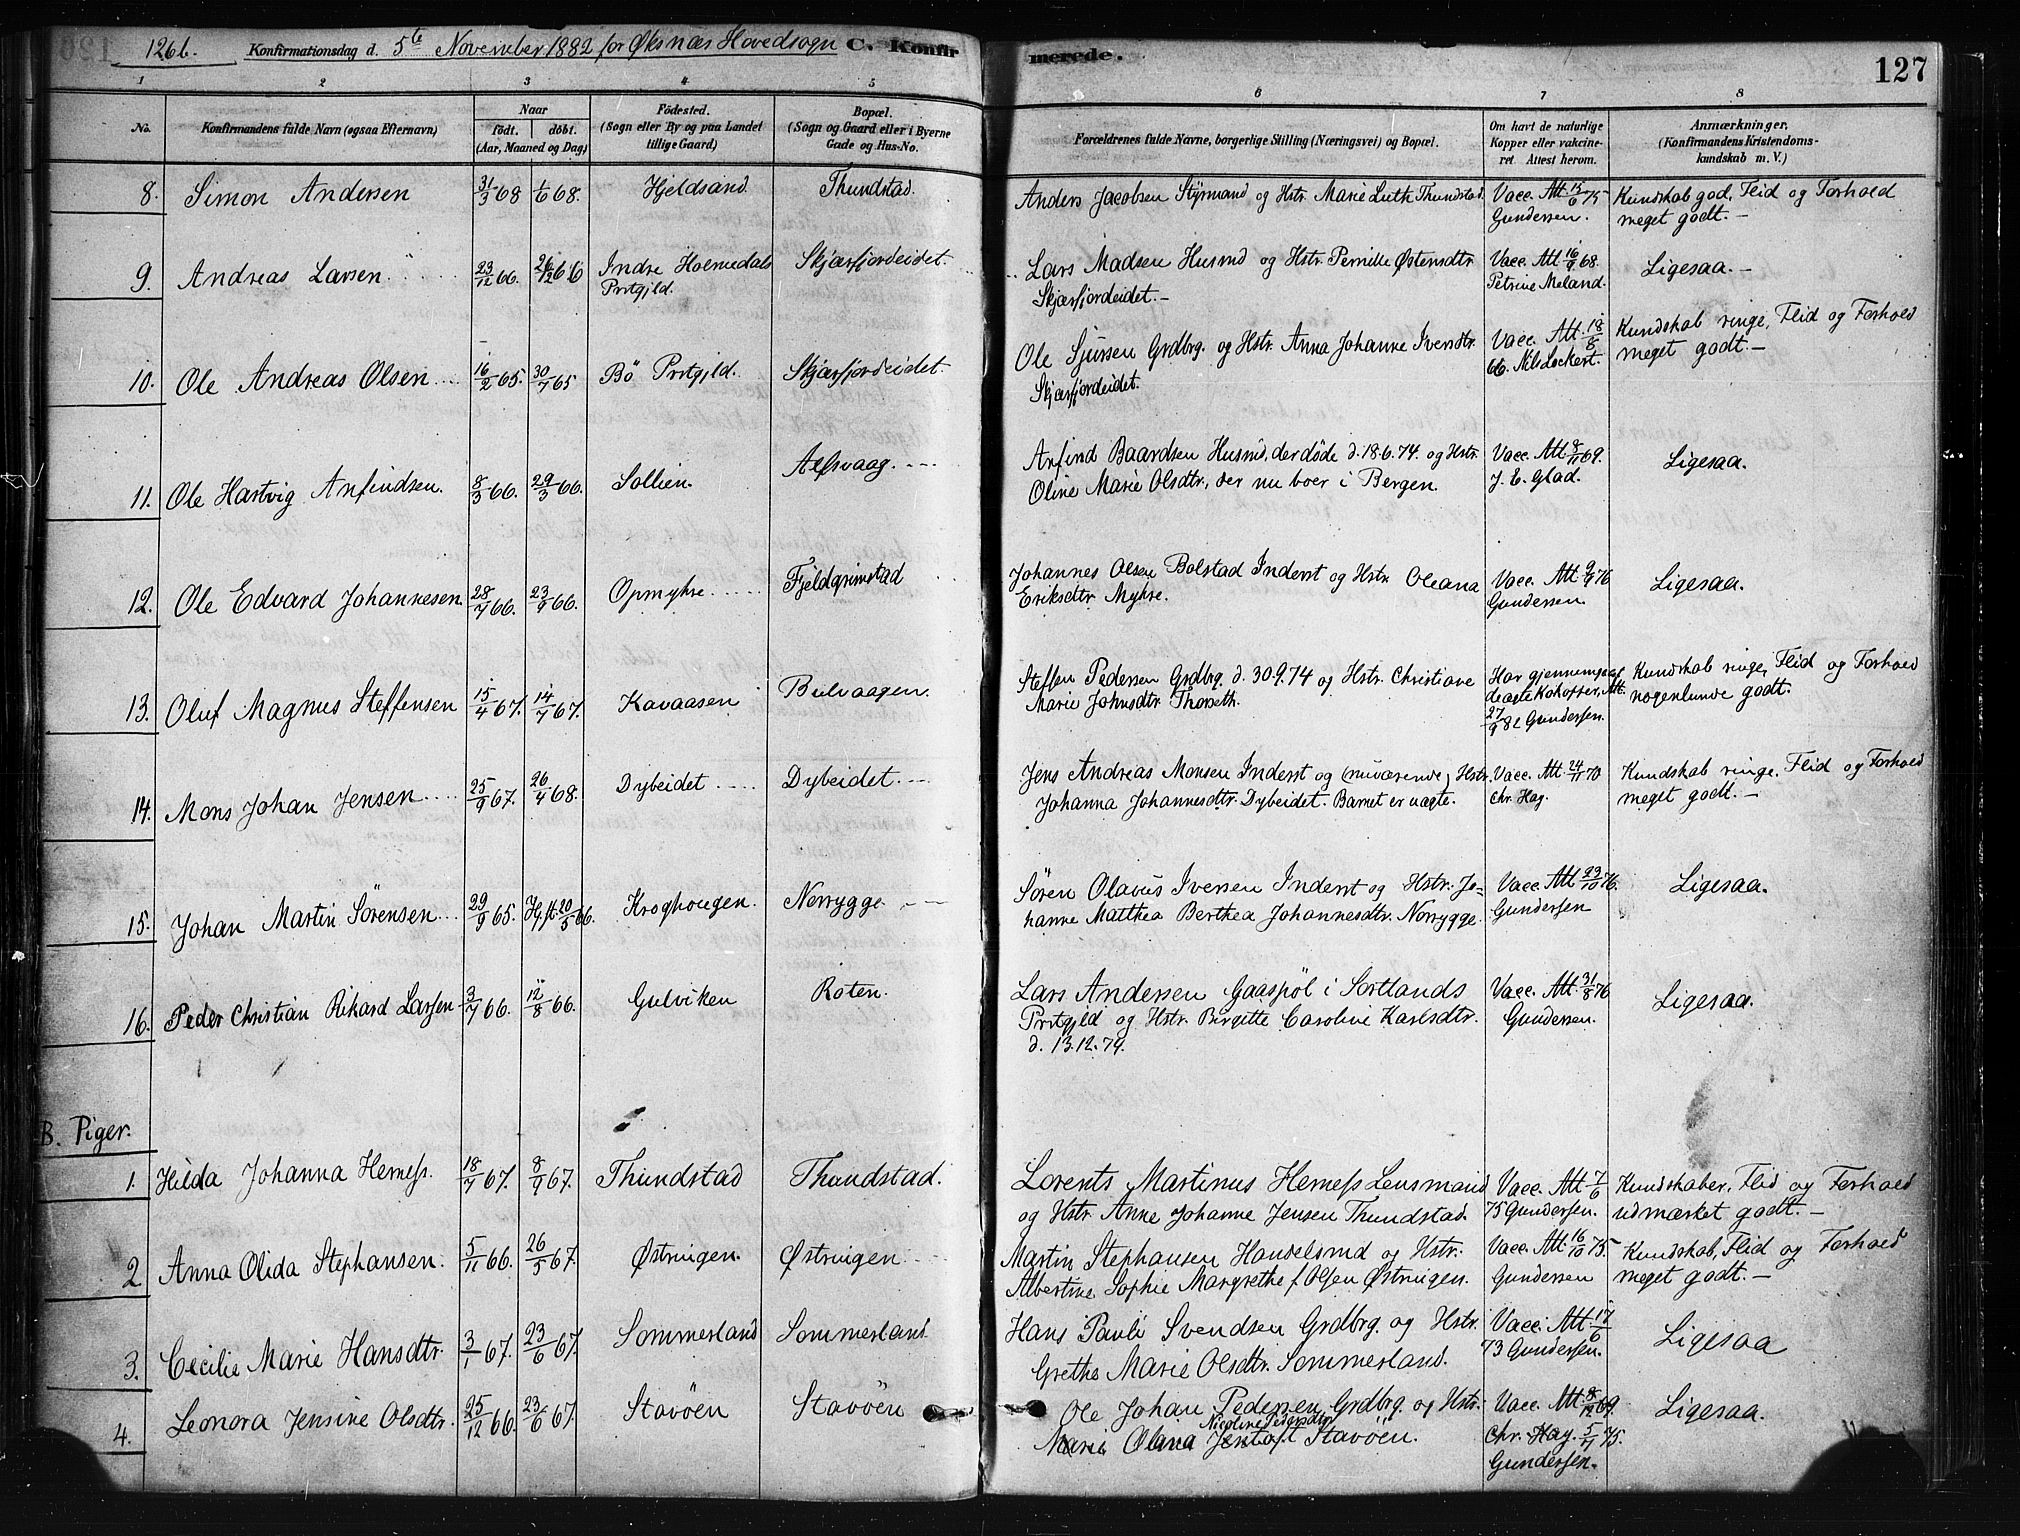 126b. Konfirmationsdag d. 5te November 1882 for Øksnæs Hovedsogn C. Konfirmerede. 127
1 2 3 4 5 6 7 8
No. Konfirmandens fulde Navn (ogsaa Efternavn) Naar født. døbt. (Aar, Maaned og Dag) Födested. (Sogn eller By og paa Landet tillige Gaard) Bopæl. (Sogn og Gaard eller i Byerne Gade og Hus-No. Forældrenes fulde Navne, borgerlige Stilling (Næringsvei) og Bopæl. Om havt de naturlige Kopper eller vakcineret Attest herom. Anmærkninger, (Konfirmandens Kristendomskundskab m. V.)
8. Simon Andersen 31/3 68 1/6 68. Hjeldsand Thundstad. Anders Jacobsen Styrmand og Hstr. Marie Luth Thundstad. Vacc. Att. 15/6 75 Kundskab god, Flid og Forhold
Gundersen. meget godt.-
9. Andreas Larsen 23/12 66. 26/12 66 Indre Holmedals Skjærfjordeidet. Lars Madsen Husmd og Hstr. Pernille Østensdtr. Vacc. Att. 16/9 68. Ligesaa.-
Prstgjld. Skjærfjordeidet.- Petrine Meland.
10. Ole Andreas Olsen 16/2 65. 30/7 65 Bö Prstgjld. Skjærfjordeidet. Ole Sjursen Grdbrg. og Hstr. Anna Johanne Iversdtr. Vacc. Att. 18/8 Kundskab ringe, Flid og Forhold
Skjærfjordeidet. 66. Nils Lockert. meget godt.-
11. Ole Hartvig Anfindsen. 8/3 66. 29/3 66. Sollien. Alfsvaag. Anfind Baardsen Husmd. der døde d. 18.6.74. og Hstr. Vacc. Att. 8/11 69. Ligesaa.
Oline Marie Olsdtr., der nu boer i Bergen. J. E. Glad.
12. Ole Edvard Johannesen 28/7 66. 23/9 66. Opmyhre Fjeldgrimstad Johannes Olsen Bolstad Inderst og Hstr. Oleana Vacc. Att. 9/9 76 Ligesaa.
Eriksdtr. Myhre. Gundersen.
13. Oluf Magnus Steffensen 15/4 67. 14/7 67. Kavaasen Bulvaagen. Steffen Pedersen Grdbrg. d. 30.9.74 og Hstr. Christiane Har gjennemgaaet Kundskab ringe, Flid og Forhold
Marie Johnsdtr. Thorseth. de ægte Kokopper, Att. nogenlunde godt.
27/9 82 Gundersen.
14. Mons Johan Jensen 25/9 67. 26/4 68. Dybeidet Dybeidet. Jens Andreas Monsen Inderst og (nuværende) Hstr. Vacc. Att. 24/11 70 Kundskab ringe. Flid og Forhold
Johanna Johannesdtr. Dybeidet. Barnet er uægte. Chr. Hay. meget godt.-
15. Johan Martin Sörensen 29/9 65. 20/5 66. Kroghougen. Norrygge. Sören Olavus Iversen Inderst og Hstr. Jo- Vacc. Att. 23/10 76. Ligesaa.
hanne Matthea Berthea Johannesdtr. Norrygge. Gundersen
16. Peder Christian Rikard Larsen 3/7 66. 12/8 66. Gulviken Roten. Lars Andersen Gaaspöl i Sortlands Vacc. Att. 31/8 76 Ligesaa.
Prstgjld og Hstr. Birgitte Caroline Karlsdtr. Gundersen.
d. 13.12.74.
B. Piger.
1. Hilda Johanna Herness. 18/7 67. 8/9 67. Thundstad Thundstad. Lorents Martinus Herness Lensmand Vacc. Att. 7/6 Kundskaber, Flid og Forhold
og Hstr. Anne Johanne Jensen Thundstad. 75 Gundersen. udmærket godt.-
2. Anna Olida Stephansen. 5/11 66. 26/5 67. Østringen. Østringen. Martin Stephansen Handelsmd og Hstr. Vacc. Att. 16/10 75. Kundskab, Flid og Forhold
Albertine Sophie Margrethe f. Olsen Østringen. Gundersen meget godt.-
3. Cecilie Marie Hansdtr. 3/1 67. 23/6 67. Sommerland Sommerland Hans Pauli Svendsen Grdbrg. og Hstr. Vacc. Att. 17/6 Ligesaa
Grethe Marie Olsdtr. Sommerland. 73 Gundersen.
4. Leonora Jensine Olsdtr. 25/12 66. 23/6 67. Stavöen Stavöen Ole Johan Pedersen Grdbrg. og Hstr. Vacc. Att. 8/12 69. Ligesaa.
Nicoline Pedersdtr.
Marie Olava Jentoft Stavöen. Chr. Hay. 5/7 75.
Gundersen.